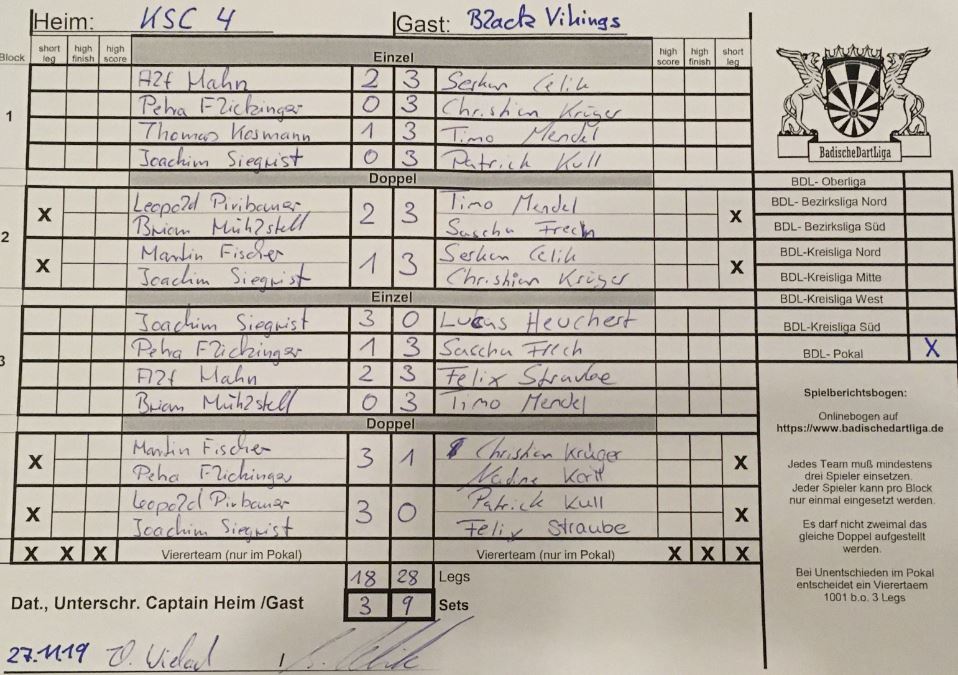 Heim: KSC 4 Gast: Black Vikings
Block short leg high finish high score Einzel high score high finish short leg
1
Alf Mahn 2 3 Serkan Celik
Petra Flickinger 0 3 Christian Krüger
Thomas Kosmann 1 3 Timo Mendel
Joachim Siegrist 0 3 Patrick Kull
Doppel
2
X Leopold Piribauer 2 3 Timo Mendel X
Brian Mühlstell Sascha Frech
X Martin Fischer 1 3 Serkan Celik X
Joachim Siegrist Christian Krüger
Einzel
3
Joachim Siegrist 3 0 Lucas Heuchert
Petra Flickinger 1 3 Sascha Frech
Alf Mahn 2 3 Felix Straube
Brian Mühlstell 0 3 Timo Mendel
Doppel
X Martin Fischer 3 1 Christian Krüger X
Petra Flickinger Nadine
X Leopold Piribauer 3 0 Patrick Kull X
Joachim Siegrist Felix Straube
X X X Viererteam (nur im Pokal) Viererteam (nur im Pokal) X X X
18 28 Legs
Dat., Unterschr. Captain Heim /Gast 3 9 Sets
27.11.19
BadischeDartLiga
BDL- Oberliga
BDL- Bezirksliga Nord
BDL- Bezirksliga Süd
BDL-Kreisliga Nord
BDL-Kreisliga Mitte
BDL-Kreisliga West
BDL-Kreisliga Süd
BDL- Pokal X
Spielberichtsbogen:
Onlinebogen auf
https://www.badischedartliga.de
Jedes Team muß mindestens
drei Spieler einsetzen.
Jeder Spieler kann pro Block
nur einmal eingesetzt werden.
Es darf nicht zweimal das
gleiche Doppel aufgestellt
werden.
Bei Unentschieden im Pokal
entscheidet ein Vierertaem
1001 b.o. 3 Legs